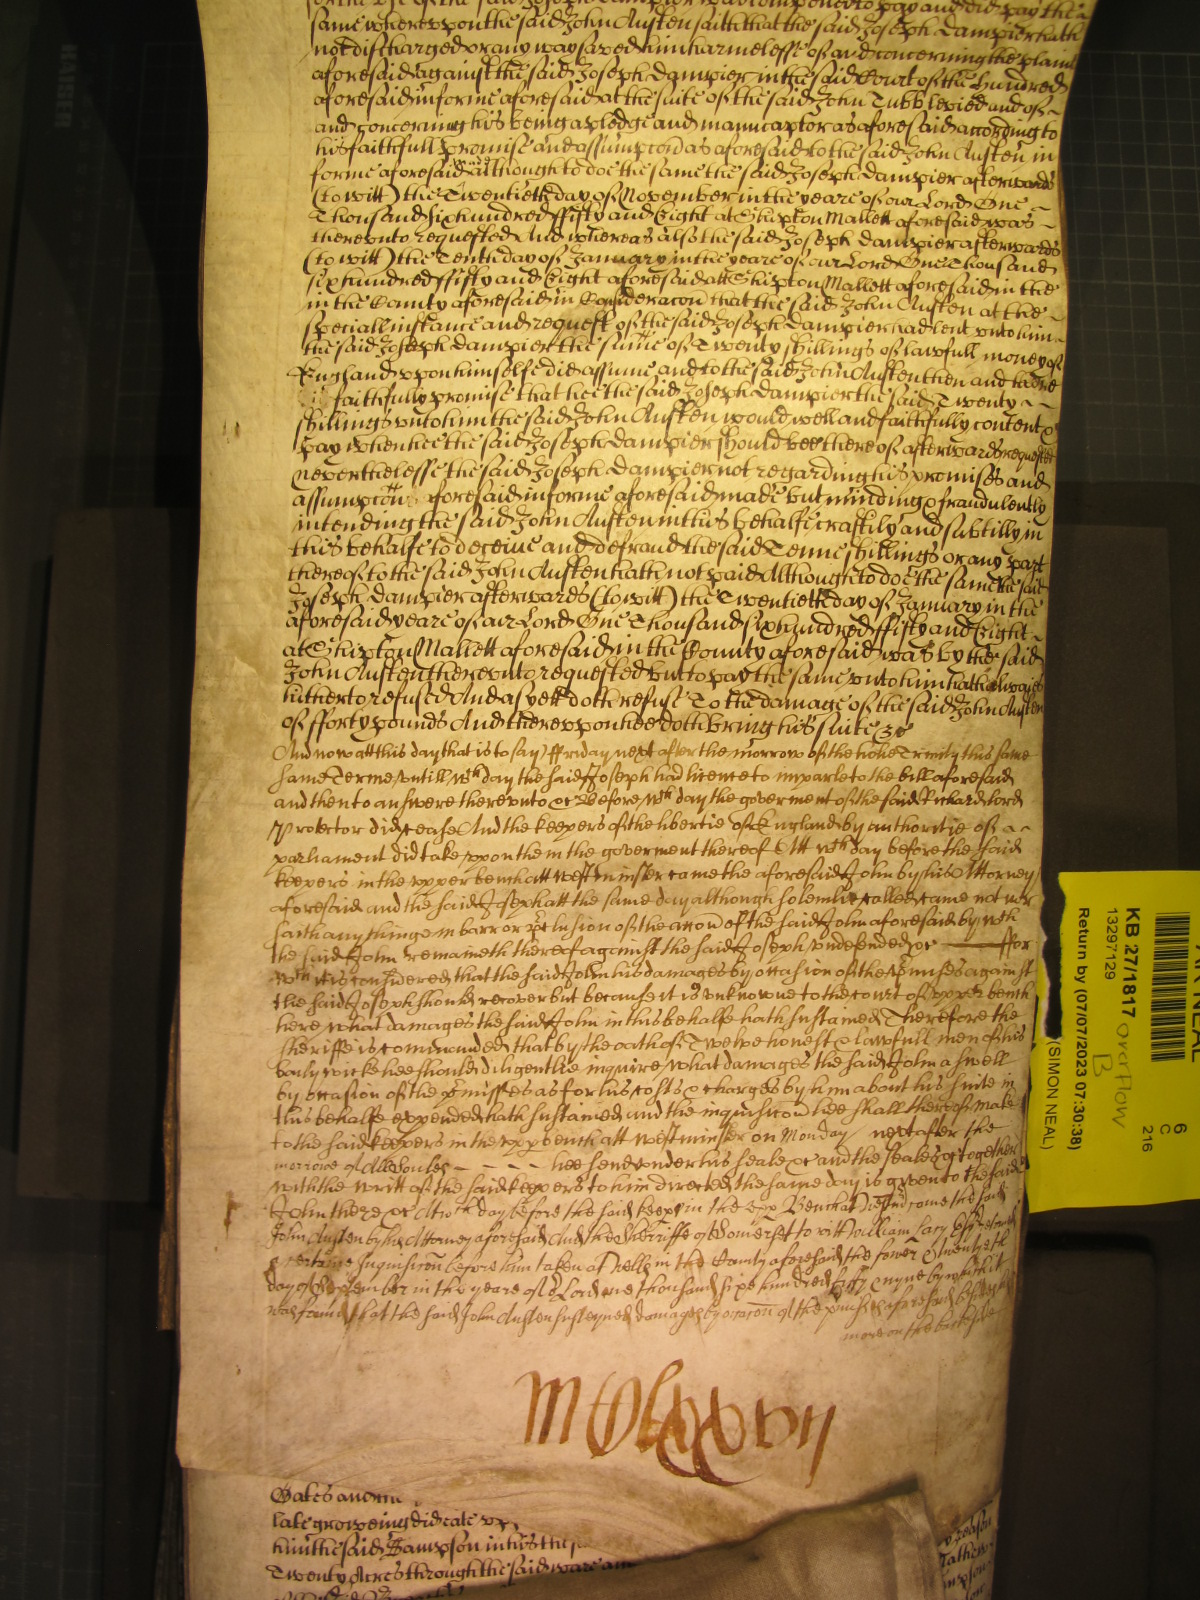 for the use of the said Joseph Dampier was compelled to pay and did pay the
same wherevpon the said John Austen saith that the said Joseph Dampier hath
not discharged or any way saved him harmelesse of and concerning the plaint
aforesaid against the said Joseph Dampier in the said Court of the hundred
aforesaid in forme aforesaid at the suite of the said John Tubb levied and of
and concerning his being a pledge and manucaptor as aforesaid according to
his faithfull promise and assumpcon as aforesaid to the said John Austen in
forme aforesaid made although to doe the same the said Joseph Dampier afterwards
(to witt) the Twentieth day of November in the yeare of our Lord One
Thousand six hundred ffifty and Eight at Shipton Mallett aforesaid was
therevnto requested And whereas also the said Joseph Dampier afterwards
(to witt) the Tenth day of January in the yeare of our Lord One Thousand
six hundred ffifty and Eight aforesaid att Shipton Mallett aforesaid in the
in the County aforesaid in Consideracon that the said John Austen at the
speciall instance and request of the said Joseph Dampier had lent vnto him
the said Joseph Dampier the summe of Twenty shillings of lawfull money of
England vpon himselfe did assume and to the said John Austen then and there
faithfully promise that hee the said Joseph Dampier the said Twenty
shillings vnto him the said John Austen would well and faithfully content &
pay when hee the said Joseph Dampier should bee thereof afterwards requested
neverthelesse the said Joseph Dampier not regarding his promises and
assumpcons aforesaid in forme aforesaid made but minding & fraudulently
intending the said John Austen in this behalfe craftily and subtilly in
this behalfe to deceive and defraud the said Tenne shillings or any part
thereof to the said John Austen hath not paid Although to doe the same the said
Joseph Dampier afterwards (to witt) the Twentieth day of January in the
aforesaid yeare of our Lord One Thousand six hundred ffifty and Eight
at Shipton Mallett aforesaid in the County aforesaid was by the said
John Austen therevnto requested but to pay the same vnto him hath alwaies
hitherto refused And as yett doth refuse To the damage of the said John Austen
of fforty pounds And therevpon hee doth bring his suite &c
And now att this day that is to say ffriday next after the morrow of the holie Trinity this same
same Terme vntill wch day the said Joseph had licence to imparle to the bill aforesaid
and then to answere therevnto &c Before wch day the goverment of the said Richard lord
Protector did cease And the keepers of the libertie of England by authoritie of
parliament did take vpon them the goverment thereof Att wch day before the said
keepers in the vpper bench att Westminster came the aforesaid John by his Attorney
aforesaid and the said Joseph att the same day although solemlie called came not nor
saith any thinge in barr or preclusion of the accon of the said John aforesaid by wch
the said John remaineth thereof against the said Joseph vndefended &c ffor
wch it is considered that the said John his damages by occasion of the premises against
the said Joseph should recover but because it is vnknowne to the court of vpper bench
here what damages the said John in this behalfe hath sustained Therefore the
sheriffe is commanded that by the oath of Twelve honest & lawfull men of his
bailywicke hee should diligentlie inquire what damages the said John aswell
by occasion of the premisses as for his costs & charges by him about his suite in
this behalfe expended hath sustained and the inquisicon hee shall thereof make
to the said keepers in the vpp bench att Westminster on Monday next after the
morrowe of All Soules hee send vnder his seale &c and the seales &c together
with the writt of the said keepers to him directed the same day is given to the said
John there &c At wch day before the said keeps in the vpp Bench at Westmr came the said
John Austen by his Attorney aforesaid And the Sherriffe of Somersett to witt William Lacy Esqr
a certaine Inquisicon before him taken at Wells in the County aforesaid the fower & twentieth
day of September in the yeare of or Lord one thousand sixe hundred fifty & nyne by which it
was found that the said John Austen susteyned damages by occacon of the premisses aforesaid
more on the backside
Oates and
late groweing did eate vp
him the said Sampson in this
Twenty Acres through the said
KB 27/1817
13297129
overflow
B
Return by (07/07/2023 07:30:38)
(SIMON NEAL)
NEAL
6
C
216